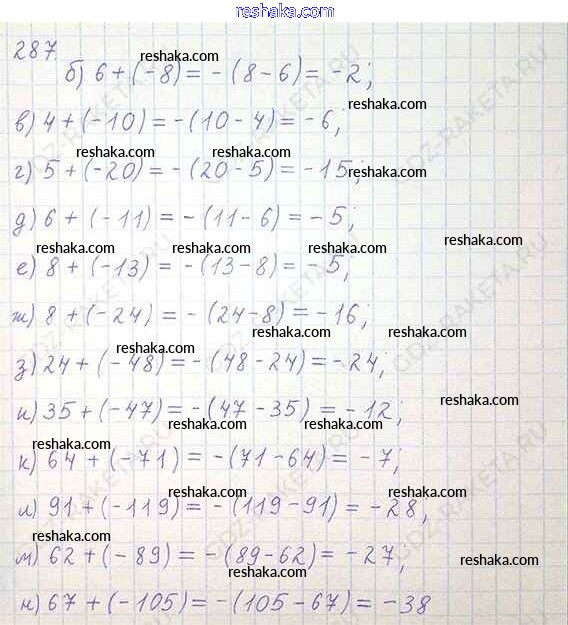 reshaka.com
287
reshaka.com
б) 6 + (-8) = -(8-6) = -2;
reshaka.com
reshaka.com
в) 4 + (-10) = -(10-4) = -6;
reshaka.com reshaka.com
г) 5 + (-20) = -(20-5) = -15;
reshaka.com
д) 6 + (-11) = -(11-6) = -5;
reshaka.com reshaka.com reshaka.com
е) 8 + (-13) = -(13-8) = -5;
ж) 8 + (-24) = -(24-8) = -16;
reshaka.com
reshaka.com
з) 24 + (-48) = -(48-24) = -24;
reshaka.com
и) 35 + (-47) = -(47-35) = -12;
reshaka.com
reshaka.com
к) 64 + (-71) = -(71-64) = -7;
reshaka.com reshaka.com
л) 91 + (-119) = -(119-91) = -28,
reshaka.com
м) 62 + (-89) = -(89-62) = -27,
reshaka.com
reshaka.com
н) 67 + (-105) = -(105-67) = -38
reshaka.com
GDZ-RAKETA.RU
GDZ-RAKETA.RU
GDZ-RAKETA.RU
GDZ-RAKETA.RU